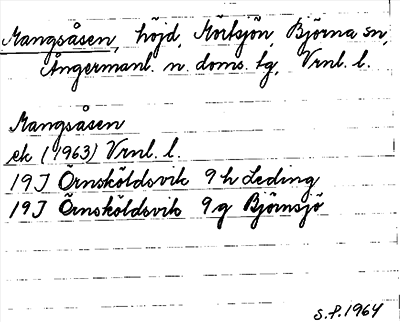 Mangsåsen, höjd, Mörtsjön, Björna sn,
Ångermanl. n. doms. tg, Vrnl. l.
Mangsåsen
ek (1963) Vrnl. l.
19J Örnsköldsvik 9h Leding
19J Örnsköldsvik 9g Björnsjö
S.F. 1964